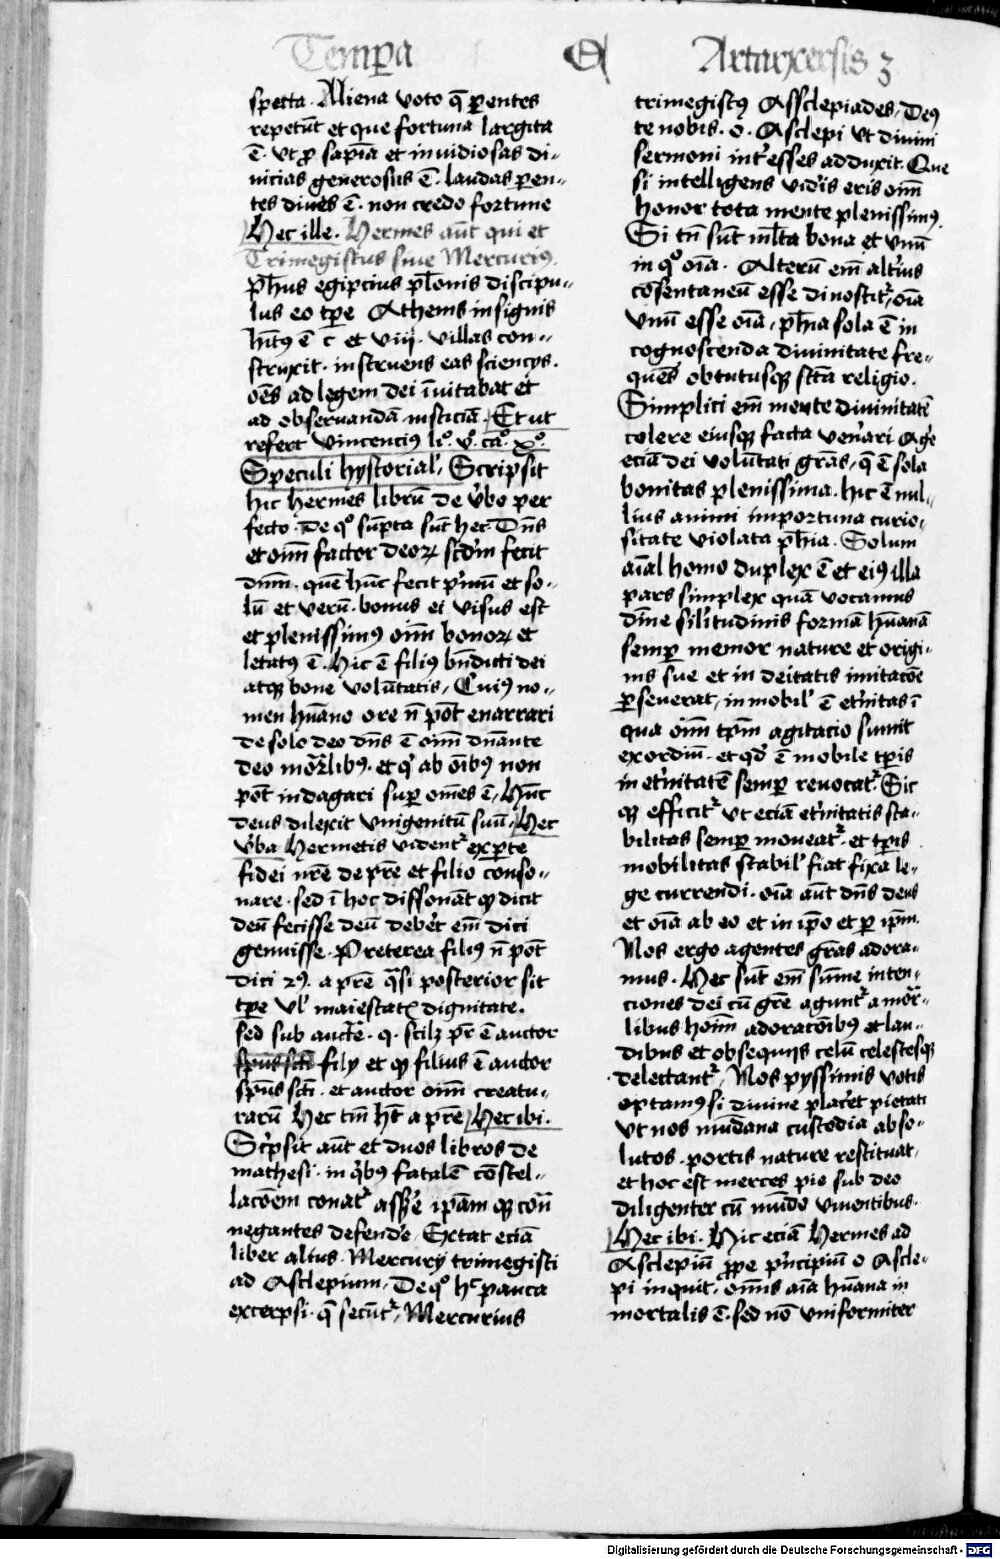 Tempa
A
Artarxersis 3
spetta. Aliena voto q̄ ꝑentes
repetūt et que fortuna largita
ē. vt ꝓ sapīa et invidiosas di-
uicias generosus ē. laudas ꝑen-
tes diues ē. non credo fortune
Hec ille. Hermes aūt qui et
Trimegistus siue Mercuriꝰ.
ph̄us egipcius plōnis discipu-
lus eo tꝑe Athenis insignis
h̄itꝰ ē c et viij. villas con-
struxit. instruens eas sciencijs.
oēs ad legem dei īuitabat et
ad obseruandā iusticiā. Et ut
refert vincenciꝰ liº. vº. caº. xº.
Speculi hystorial'. Scripsit
hic hermes librū de v̄bo per
fecto. de qº sūpta sūt hec. Dn̄s
et oīm factor deoꝝ scd̄m fecit
dn̄m. quē hūc fecit p'mū et so-
lū et verū. bonus ei visus est
et plenissimꝰ oīm bonoꝝ et
letatꝰ ē. Hic ē filiꝰ bn̄dicti dei
atqꝫ bone volūtatis, Cuiꝰ no-
men hūano ore n̄ pōt enarrari
de solo deo dn̄s ē oīm dn̄ante
deo mōr̄libꝰ. et q' ab oībꝰ non
pōt indagari suꝑ om̄es ē. Hūc
deus dilexit vnigenitū suū. Hec
v̄ba Hermetis videntᷣ exꝑte
fidei nr̄e de pr̄e et filio conso-
nare. sed ī hoc dissonāt ꝙ dicit
deū fecisse deū debet em̄ dici
genuisse. Preterea filiꝰ n̄ pōt
dici 2ꝰ. a pr̄e q̄si posterior sit
tꝑe vl' maiestatꝭ dignitate.
sed sub aucte. q. scilꝫ pr̄ ē auctor
sp̄us sc̄i filij et ꝙ filius ē auctor
sp̄us sc̄i. et auctor oīm creatu-
rarū Hec tn̄ h̄t a pr̄e Hec ibi.
Sc'psit aūt et duos libros de
mathesi. in q'bꝰ fatalē cōstel-
lacōem conatᷣ assr̄e ipām qꝫ
negantes defendē. Extat eciā
liber alius Mercurij trimegisti
ad Asclepium, De qº hͨ pauca
excerpsi. q̄ secūtᷣ, Mercurius
trimegistꝰ Assclepiades, Deꝰ
te nobis. o. Asclepi vt diuini
sermoni int'esses adduxit. Que
si intelligens vid'is eris oīm
honor tota mente plenissimꝰ.
Si tn̄ sūt ml̄ta bona et vnū
in qº oīa. Alterū em̄ alt'ius
cōsentaneū esse dinoscitᷣ, oīa
vnū esse oīa, ph̄ia sola ē in
cognoscenda diuinitate fre-
quēs obtutusqꝫ sc̄ta religio.
Simplici em̄ mente diuinitatē
colere eiusqꝫ facta ven'ari Ag'e
eciā dei volūtati grās, q̄ ē sola
bonitas plenissima. hic ē nul-
lius animi importuna curio-
sitate violata ph̄ia. Solum
aīal homo duplex ē et eiꝰ illa
pars simplex quā vocamus
diūe sil'itudinis formā hūanā
semꝑ memor nature et origi-
nis sue et in deitatis imitacōe
ꝑseuerat, inmobil' ē et'nitas ī
qua oīm tp̄m agitacio sumit
exordiū. et qd' ē mobile tꝑis
in et'nitatē semꝑ reuocatᷣ. Sic
qꝫ efficitᷣ vt eciā et'nitatis sta-
bilitas semꝑ moueatᷣ. et tꝑis
mobilitas stabil' fiat fixa le-
ge currendi. oīa aūt dn̄s deus
et oīa ab eo et in ip̄o et ꝑ ip̄m.
Nos ergo agentes grās adora-
mus. Hec sūt em̄ sum̄e inten-
ciones dei cū gr̄e aguntᷣ a mōr̄-
libus hoīm adoracōibꝰ et lau-
dibus et obsequijs celū celestesqꝫ
delectantᷣ, Nos pyssimis votis
optamꝰ si diuine placet pietati
vt nos mūdana custodia abso-
lutos. portis nature restituat.
et hoc est merces pie sub deo
diligenter cū mūdo viuentibus.
Hec ibi. Hic eciā Hermes ad
Asclepiū ꝓpe p'ncipiū o Ascle-
pi inquit. om̄is aīa hūana in
mortalis ē. sed nō vniformiter
Digitalisierung gefördert durch die Deutsche Forschungsgemeinschaft - DFG